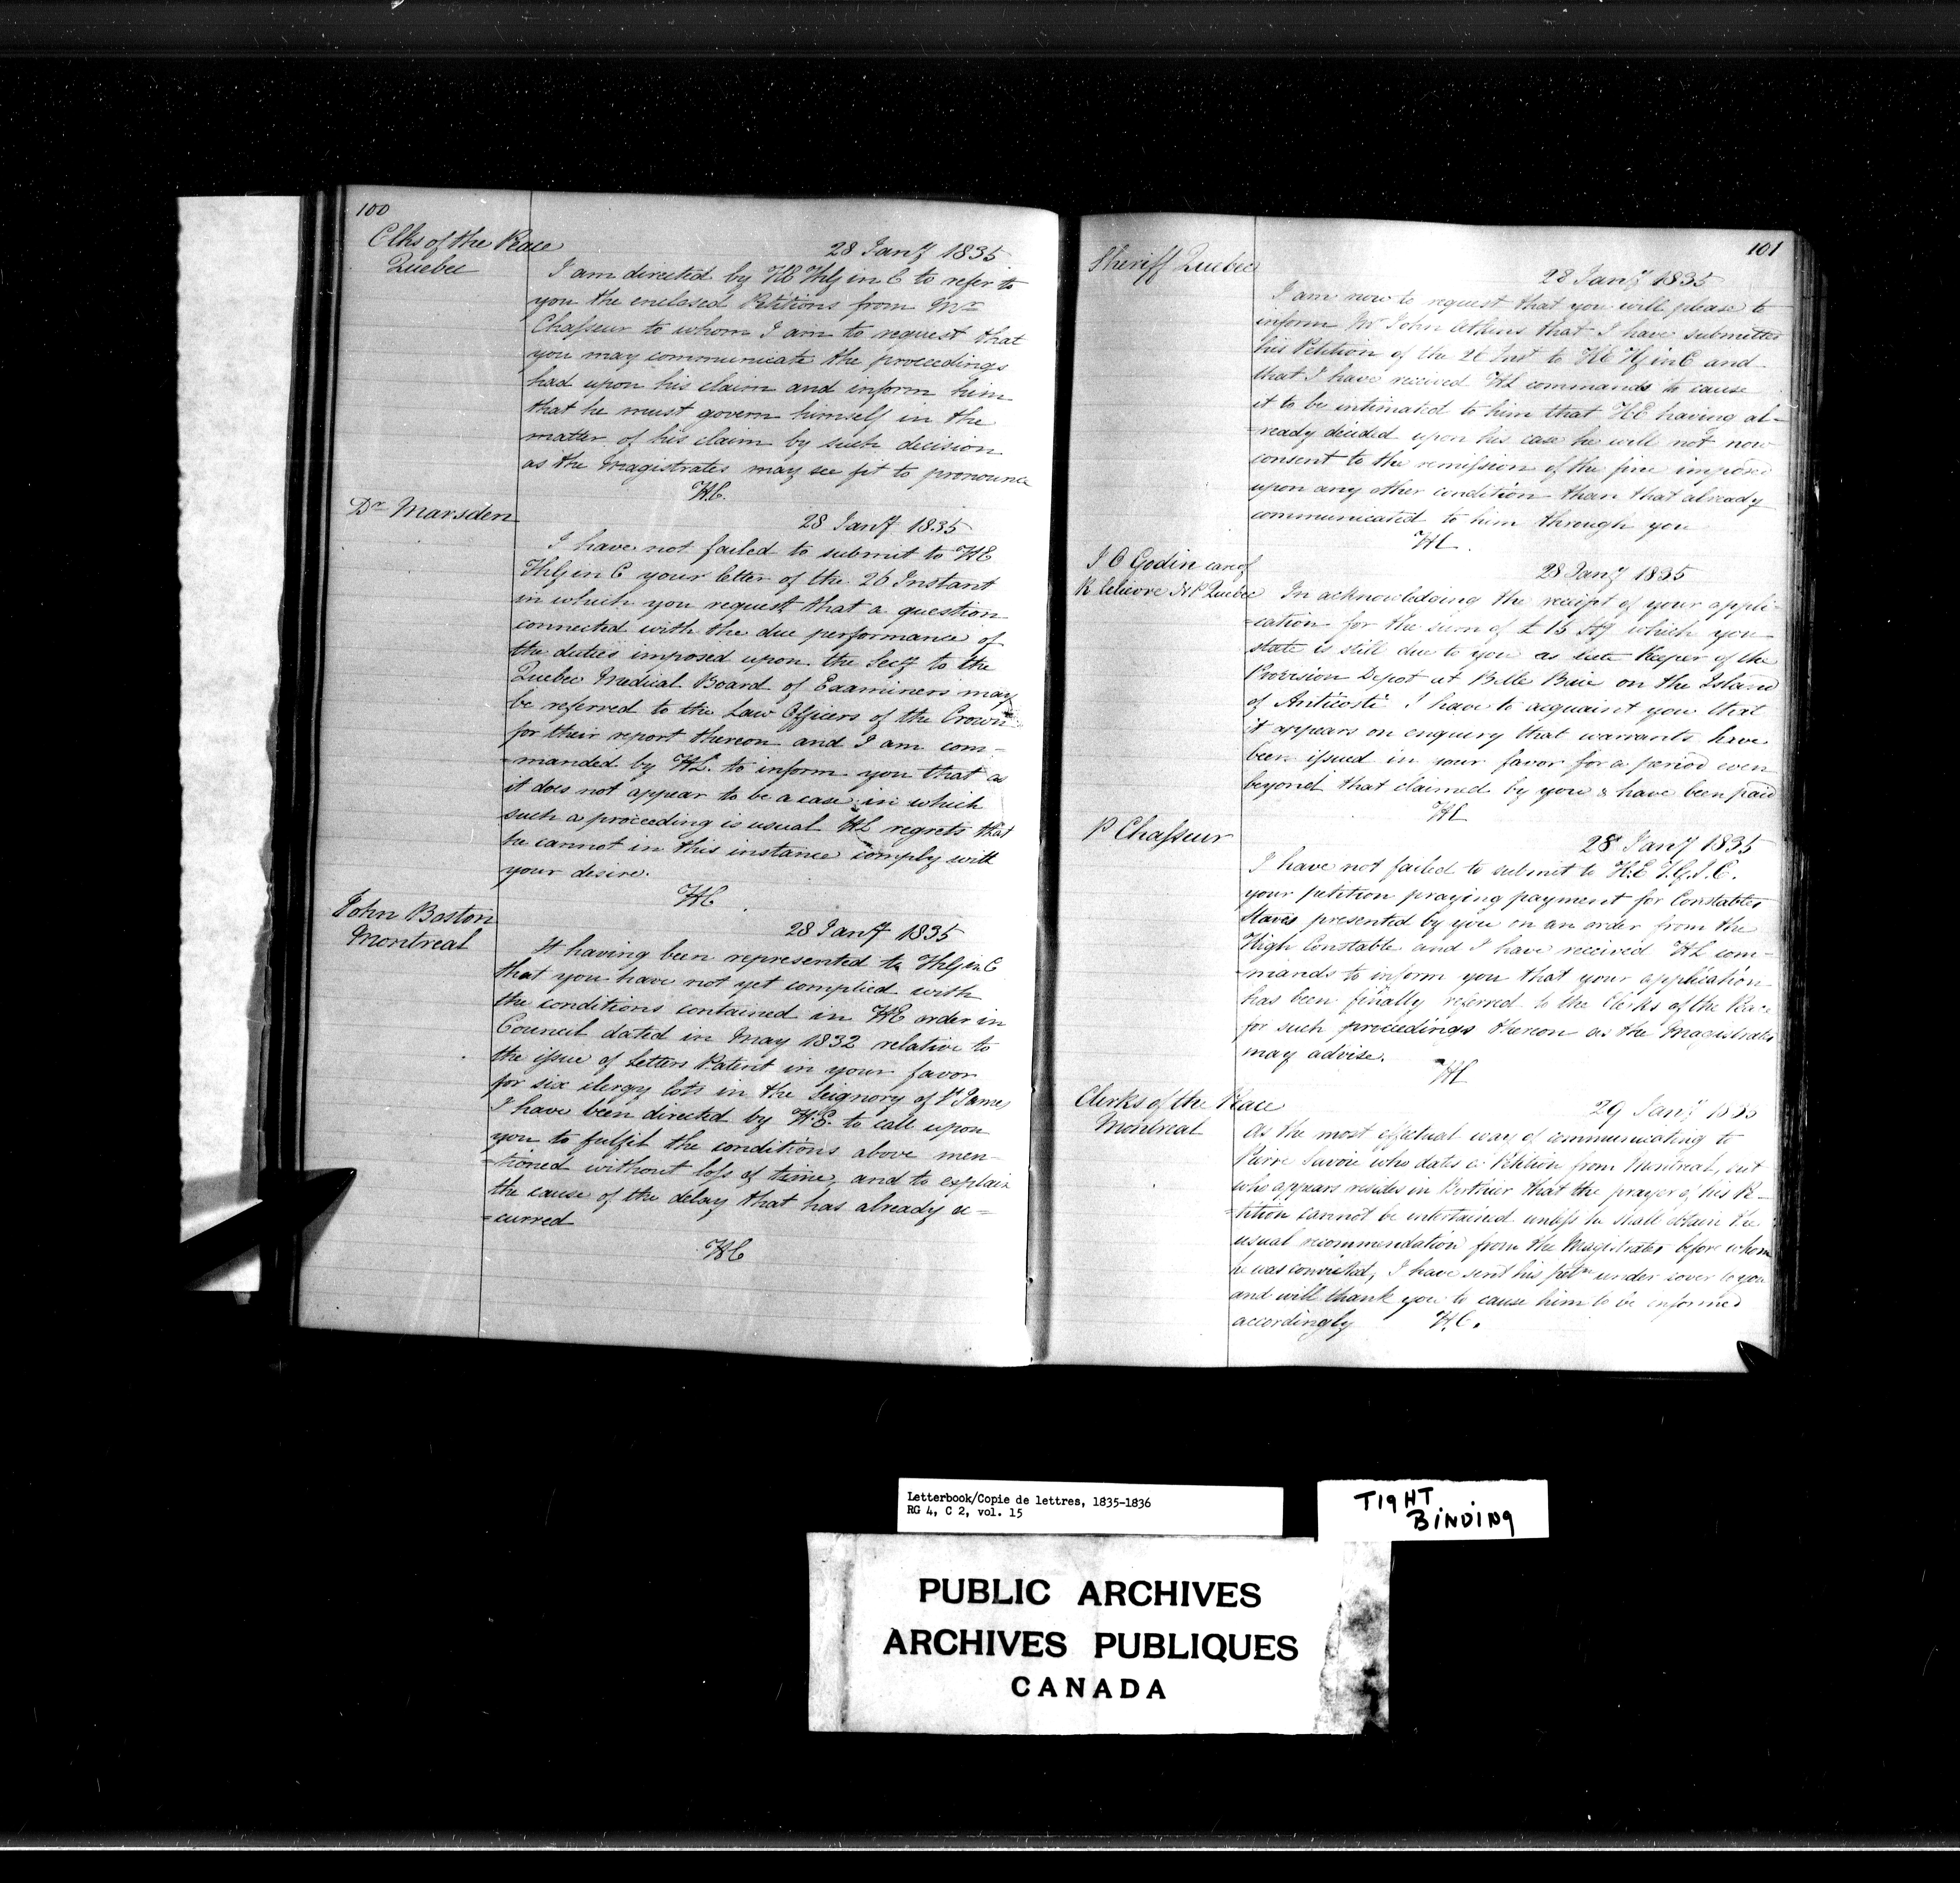 100
Clks of the Peace
Quebec
28 Jany 1835
I am directed by HE ThG in C to refer to
you the enclosed Petitions from Mr
Chasseur to whom I am to request that
you may communicate the proceedings
had upon his claim and inform him
that he must govern himself in the
matter of his claim by such decision
as the Magistrates may see fit to pronounce
HC.
Dr Marsden
28 Jany 1835
I have not failed to submit to HE
ThG in C your letter of the 26 Instant
in which you request that a question
connected with the due performance of
the duties imposed upon the Secy to the
Quebec Medical Board of Examiners may
be referred to the Law Officers of the Crown
for their report thereon and I am com-
-manded by HE. to inform you that as
it does not appear to be a case in which
such a proceeding is usual HE regrets that
he cannot in this instance comply with
your desire.
HC
John Boston
Montreal
28 Jany 1835
It having been represented to ThG in C
that you have not yet complied with
the conditions contained in HE order in
Council dated in May 1832 relative to
the issue of Letters Patent in your favor
for six clergy lots in the Seignory of St James
I have been directed by H.E. to call upon
you to fulfil the conditions above men-
-tioned without loss of time, and to explain
the cause of the delay that has already oc=
=curred
HC
101
Sheriff Quebec
28 Jany 1835
I am now to request that you will please to
inform Mr John that I have submitted
his Petition of the 26 Inst to HE G in C and
that I have received HE commands to cause
it to be intimated to him that HE having al-
-ready decided upon his case he will not now
consent to the remission of the fine imposed
upon any other condition than that already
communicated to him through you
HC.
J C Godin care of
R Lelievre NP Quebec
28 Jany 1835
In acknowledging the receipt of your appli-
-cation for the sum of £15 which you
state is still due to you as late Keeper of the
Provision Depot at Belle Baie on the Island
of Anticosti I have to acquaint you that
it appears on enquiry that warrants have
been issued in your favor for a period even
beyond that claimed by you & have been paid
HC
P Chasseur
28 Jany 1835
I have not failed to submit to H.E T.G.I.C.
your petition praying payment for Constables
Staves presented by you on an order from the
High Constable and I have received HE com-
-mands to inform you that your application
has been finally referred to the Clerks of the Peace
for such proceedings thereon as the Magistrates
may advise.
HC
Clerks of the Peace
Montreal
29 Jany 1835
As the most effectual way of communicating to
Pierre Savoie who dates a Petition from Montreal, but
who appears resides in Berthier that the prayer of his Pe-
-tition cannot be entertained unless he shall obtain the
usual recommendation from the Magistrates before whom
he was convicted, I have sent his petn under cover to you
and will thank you to cause him to be informed
accordingly H.C.
Letterbook/Copie de lettres, 1835-1836
RG 4, C 2, vol. 15
TIGHT
BINDING
PUBLIC ARCHIVES
ARCHIVES PUBLIQUES
CANADA